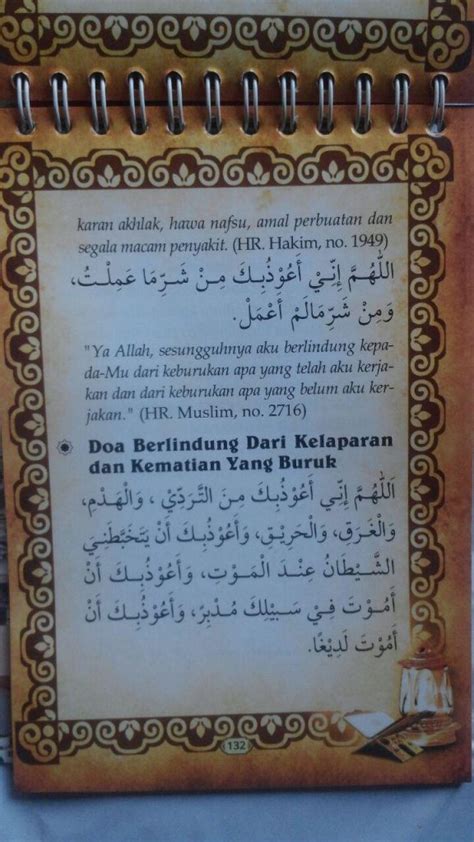 karan akhlak, hawa nafsu, amal perbuatan dan
segala macam penyakit. (HR. Hakim, no. 1949)
اَللّٰهُمَّ إِنِّيْ أَعُوْذُبِكَ مِنْ شَرِّمَا عَمِلْتُ،
وَمِنْ شَرِّمَالَمْ أَعْمَلْ.
"Ya Allah, sesungguhnya aku berlindung kepa-
da-Mu dari keburukan apa yang telah aku kerja-
kan dan dari keburukan apa yang belum aku ker-
jakan." (HR. Muslim, no. 2716)
Doa Berlindung Dari Kelaparan
dan Kematian Yang Buruk
اَللّٰهُمَّ إِنِّي أَعُوْذُبِكَ مِنَ التَّرَدِّيْ، وَالْهَدْمِ،
وَالْغَرَقِ، وَالْحَرِيْقِ، وَأَعُوْذُبِكَ أَنْ يَتَخَبَّطَنِيَ
الشَّيْطَانُ عِنْدَ الْمَوْتِ، وَأَعُوْذُبِكَ أَنْ
أَمُوْتَ فِيْ سَبِيْلِكَ مُدْبِرًا، وَأَعُوْذُبِكَ أَنْ
أَمُوْتَ لَدِيْغًا.
132